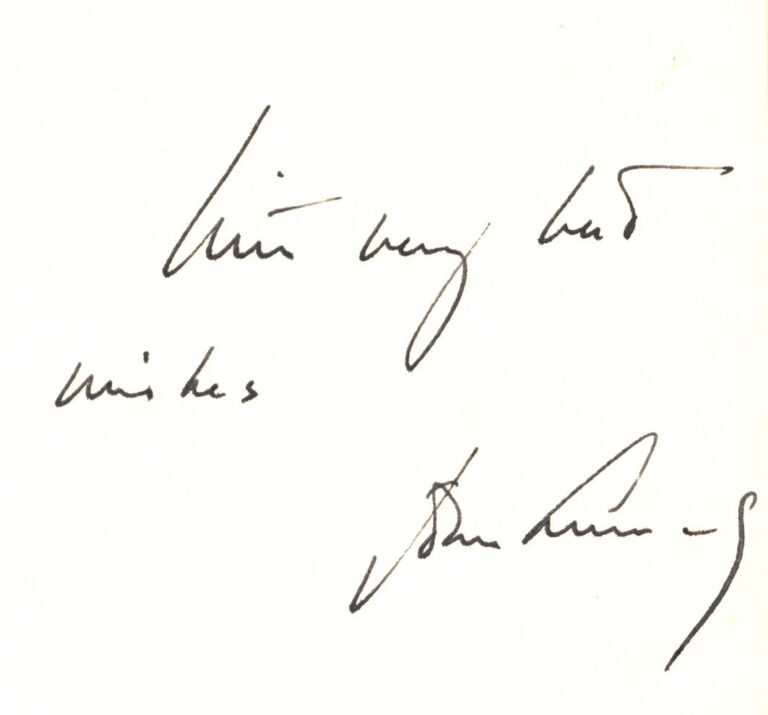 With very best
wishes
John